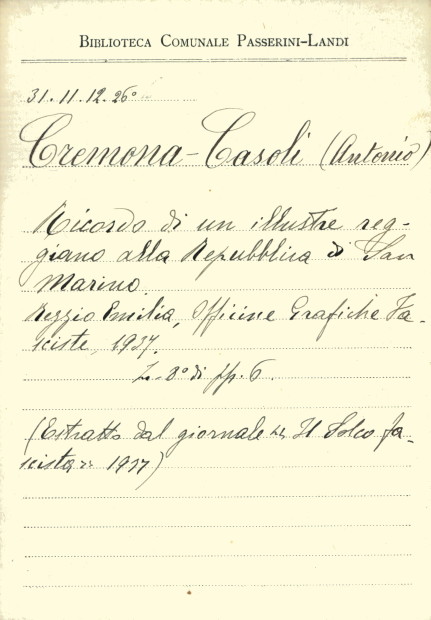 BIBLIOTECA COMUNALE PASSERINI-LANDI
31.11.12.26°
Cremona-Casoli (Antonio)
Ricordo di un illustre reg-
giano alla Repubblica di San
Marino.
Reggio Emilia, Officine Grafiche Fa-
sciste, 1937.
In-8° di pp. 6.
(Estratto dal giornale « Il Solco fa-
scista » 1937)